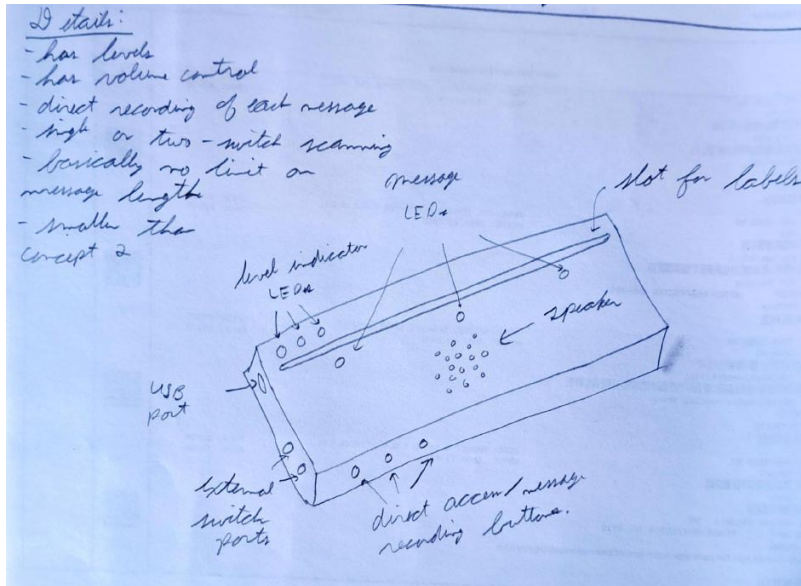 Details:
- has levels
- has volume control
- direct recording of each message
- single or two-switch scanning
- basically no limit on
message lengths
- smaller than
concept 2
message
LEDs
slot for labels
level indicator
LEDs
speaker
USB
port
external
switch
ports
direct access/message
recording buttons.